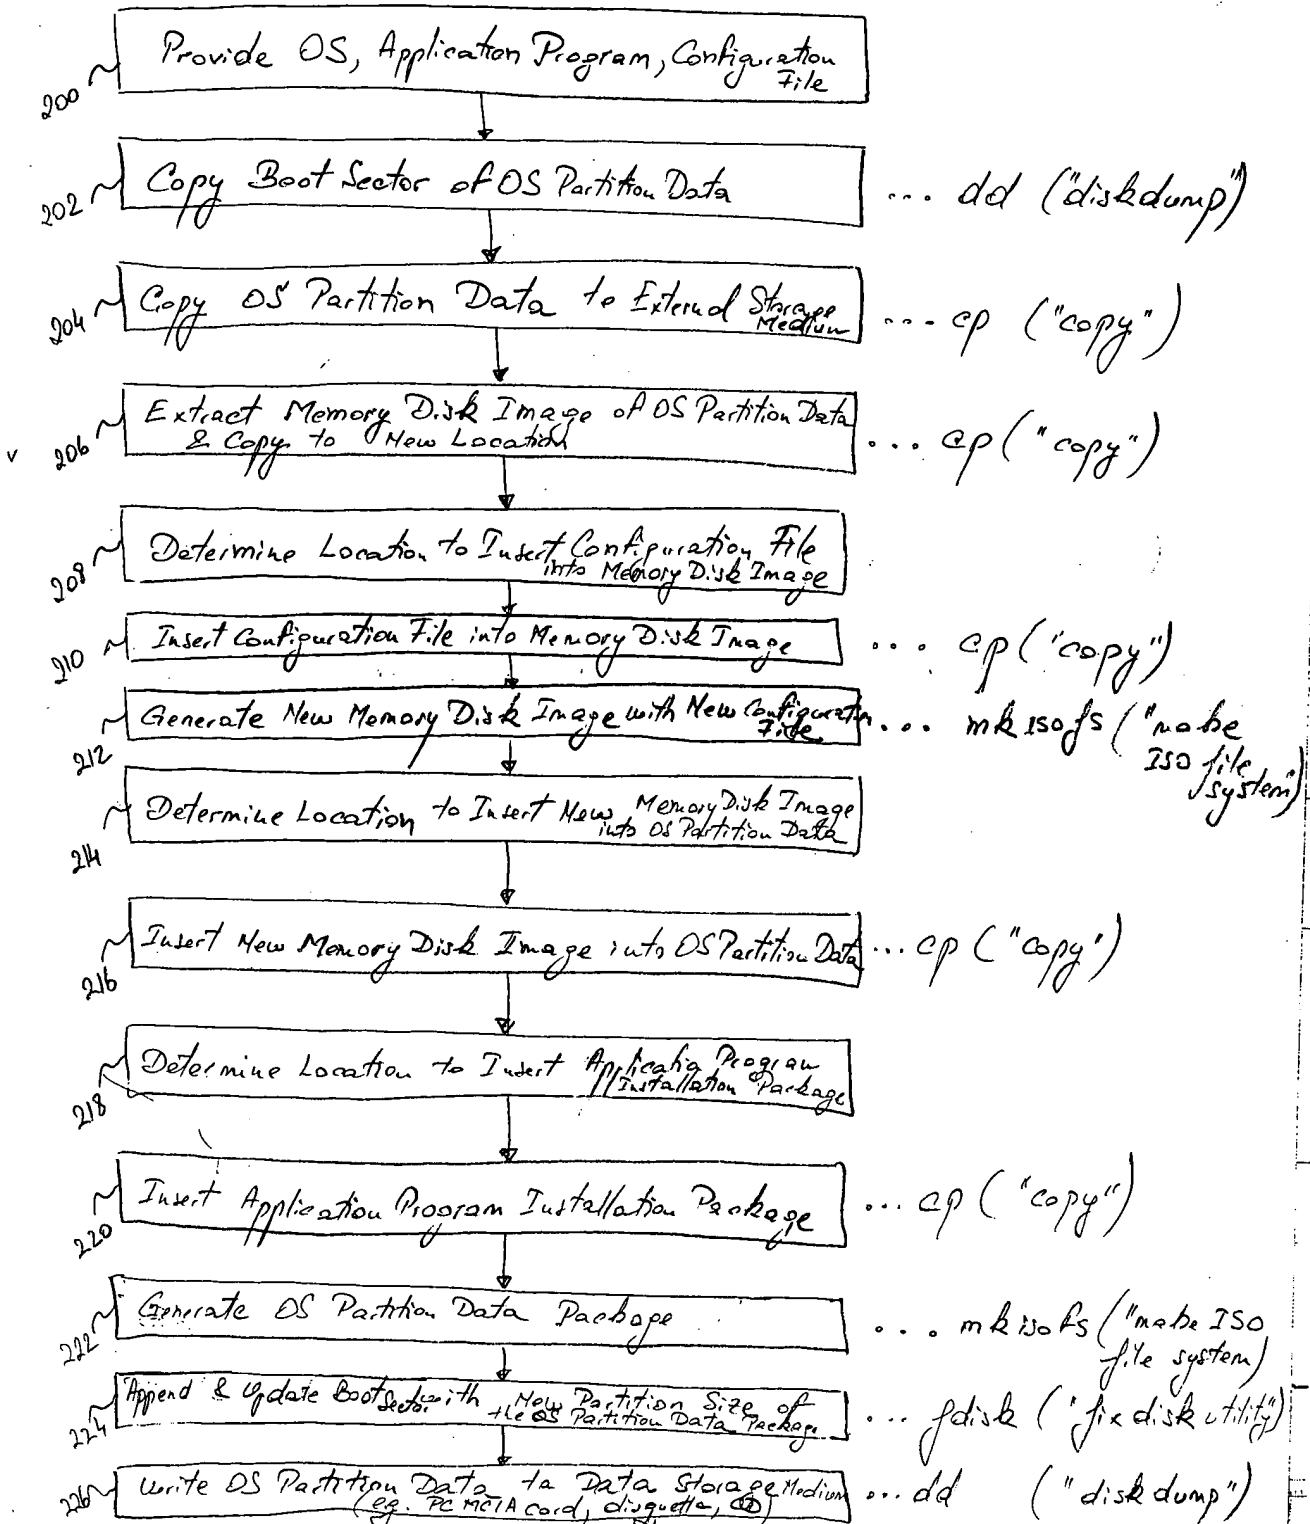 Provide OS, Application Program, Configuration
File
200
Copy Boot Sector of OS Partition Data
... dd ("diskdump")
202
Copy OS Partition Data to External Storage
Medium
... cp ("copy")
204
Extract Memory Disk Image of OS Partition Data
& Copy to New Location
... cp ("copy")
v
206
Determine Location to Insert Configuration File
into Memory Disk Image
208
Insert Configuration File into Memory Disk Image
... cp ("copy")
210
Generate New Memory Disk Image with New Configuration
File
... mkisofs ("make
ISO file
system")
212
Determine Location to Insert New Memory Disk Image
into OS Partition Data
214
Insert New Memory Disk Image into OS Partition Data
... cp ("copy")
216
Determine Location to Insert Applicatio Program
Installation Package
218
Insert Application Program Installation Package
... cp ("copy")
220
Generate OS Partition Data Package
... mkisofs ("make ISO
file system)
222
Append & Update Boot Sector with New Partition Size of
the OS Partition Data Package
... fdisk ("fix disk utility")
224
Write OS Partition Data to Data Storage Medium
(eg. PCMCIA card, disquette, CD)
... dd ("disk dump")
226